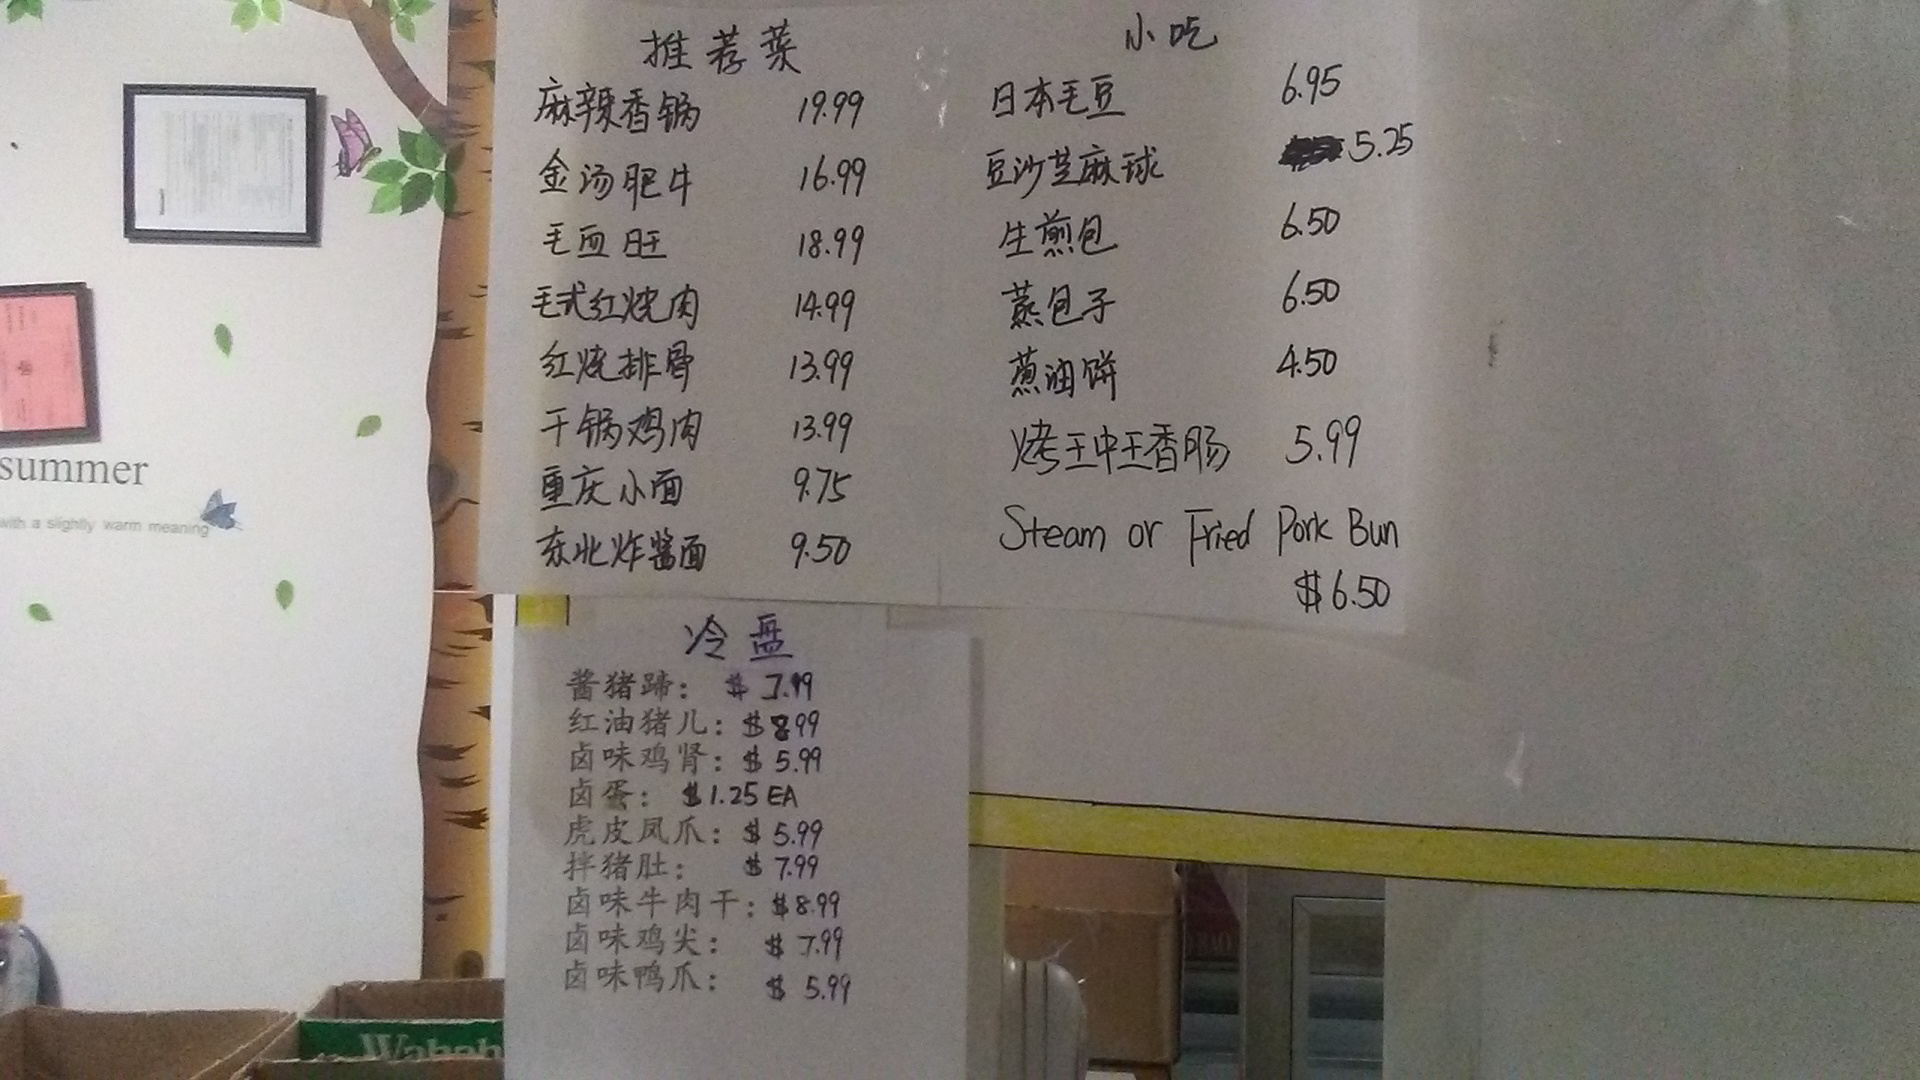 推荐菜
麻辣香锅 19.99
金汤肥牛 16.99
毛血旺 18.99
毛式红烧肉 14.99
红烧排骨 13.99
干锅鸡肉 13.99
重庆小面 9.75
东北炸酱面 9.50
小吃
日本毛豆 6.95
豆沙芝麻球 5.25
生煎包 6.50
蒸包子 6.50
葱油饼 4.50
烤王中王香肠 5.99
Steam or Fried Pork Bun
$6.50
冷盘
酱猪蹄: $ 7.99
红油猪儿: $ 8.99
卤味鸡肾: $ 5.99
卤蛋: $1.25 EA
虎皮凤爪: $ 5.99
拌猪肚: $ 7.99
卤味牛肉干: $8.99
卤味鸡尖: $ 7.99
卤味鸭爪: $ 5.99
summer
with a slightly warm meaning